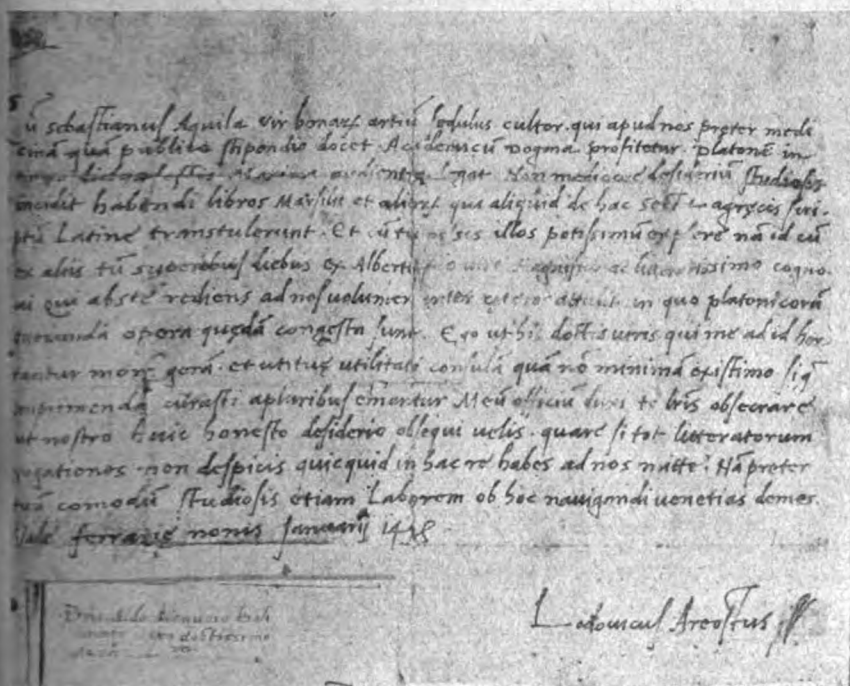 ũ sebastianus Aquila vir bonarꝝ artiũ sedulus cultor. qui apud nos preter medi
cinã quã publico stipendio docet Academicũ Dogma profitetur Platonẽ in
audientię legat Non mediocre desideriũ studiosis
incidit habendi libros Marsilii et aliorꝝ qui aliquid de hac secta agręcis scri
pta Latine transtulerunt. Et cũ tu illos potissimũ nã id cũ
ex aliis tũ superioribus diebus ex Alberto uiro Magnifico ac litteratissimo cogno
ui qui abs te rediens ad nos uolumen inter cętera attulit in quo platonicorũ
opera quędã congesta sunt. Ego ut his doctis uiris qui me ad id hor
tantur morẽ gerã. et ut utilitati consulã quã nõ minimã existimo siq
imprimenda curasti a pluribus emantur Meũ officiũ duxi te lr̃is obsecrare
ut nostro huic honesto desiderio obsequi uelis. quare si tot litteratorum
rogationes non despicis quicquid in hac re habes ad nos mitte. Nã preter
tuũ comodũ studiosis etiam Laborem ob hoc nauigandi uenetias demes.
Vale ferrarię nonis Januarij 1498
Lodouicus Areostus
doctissimo